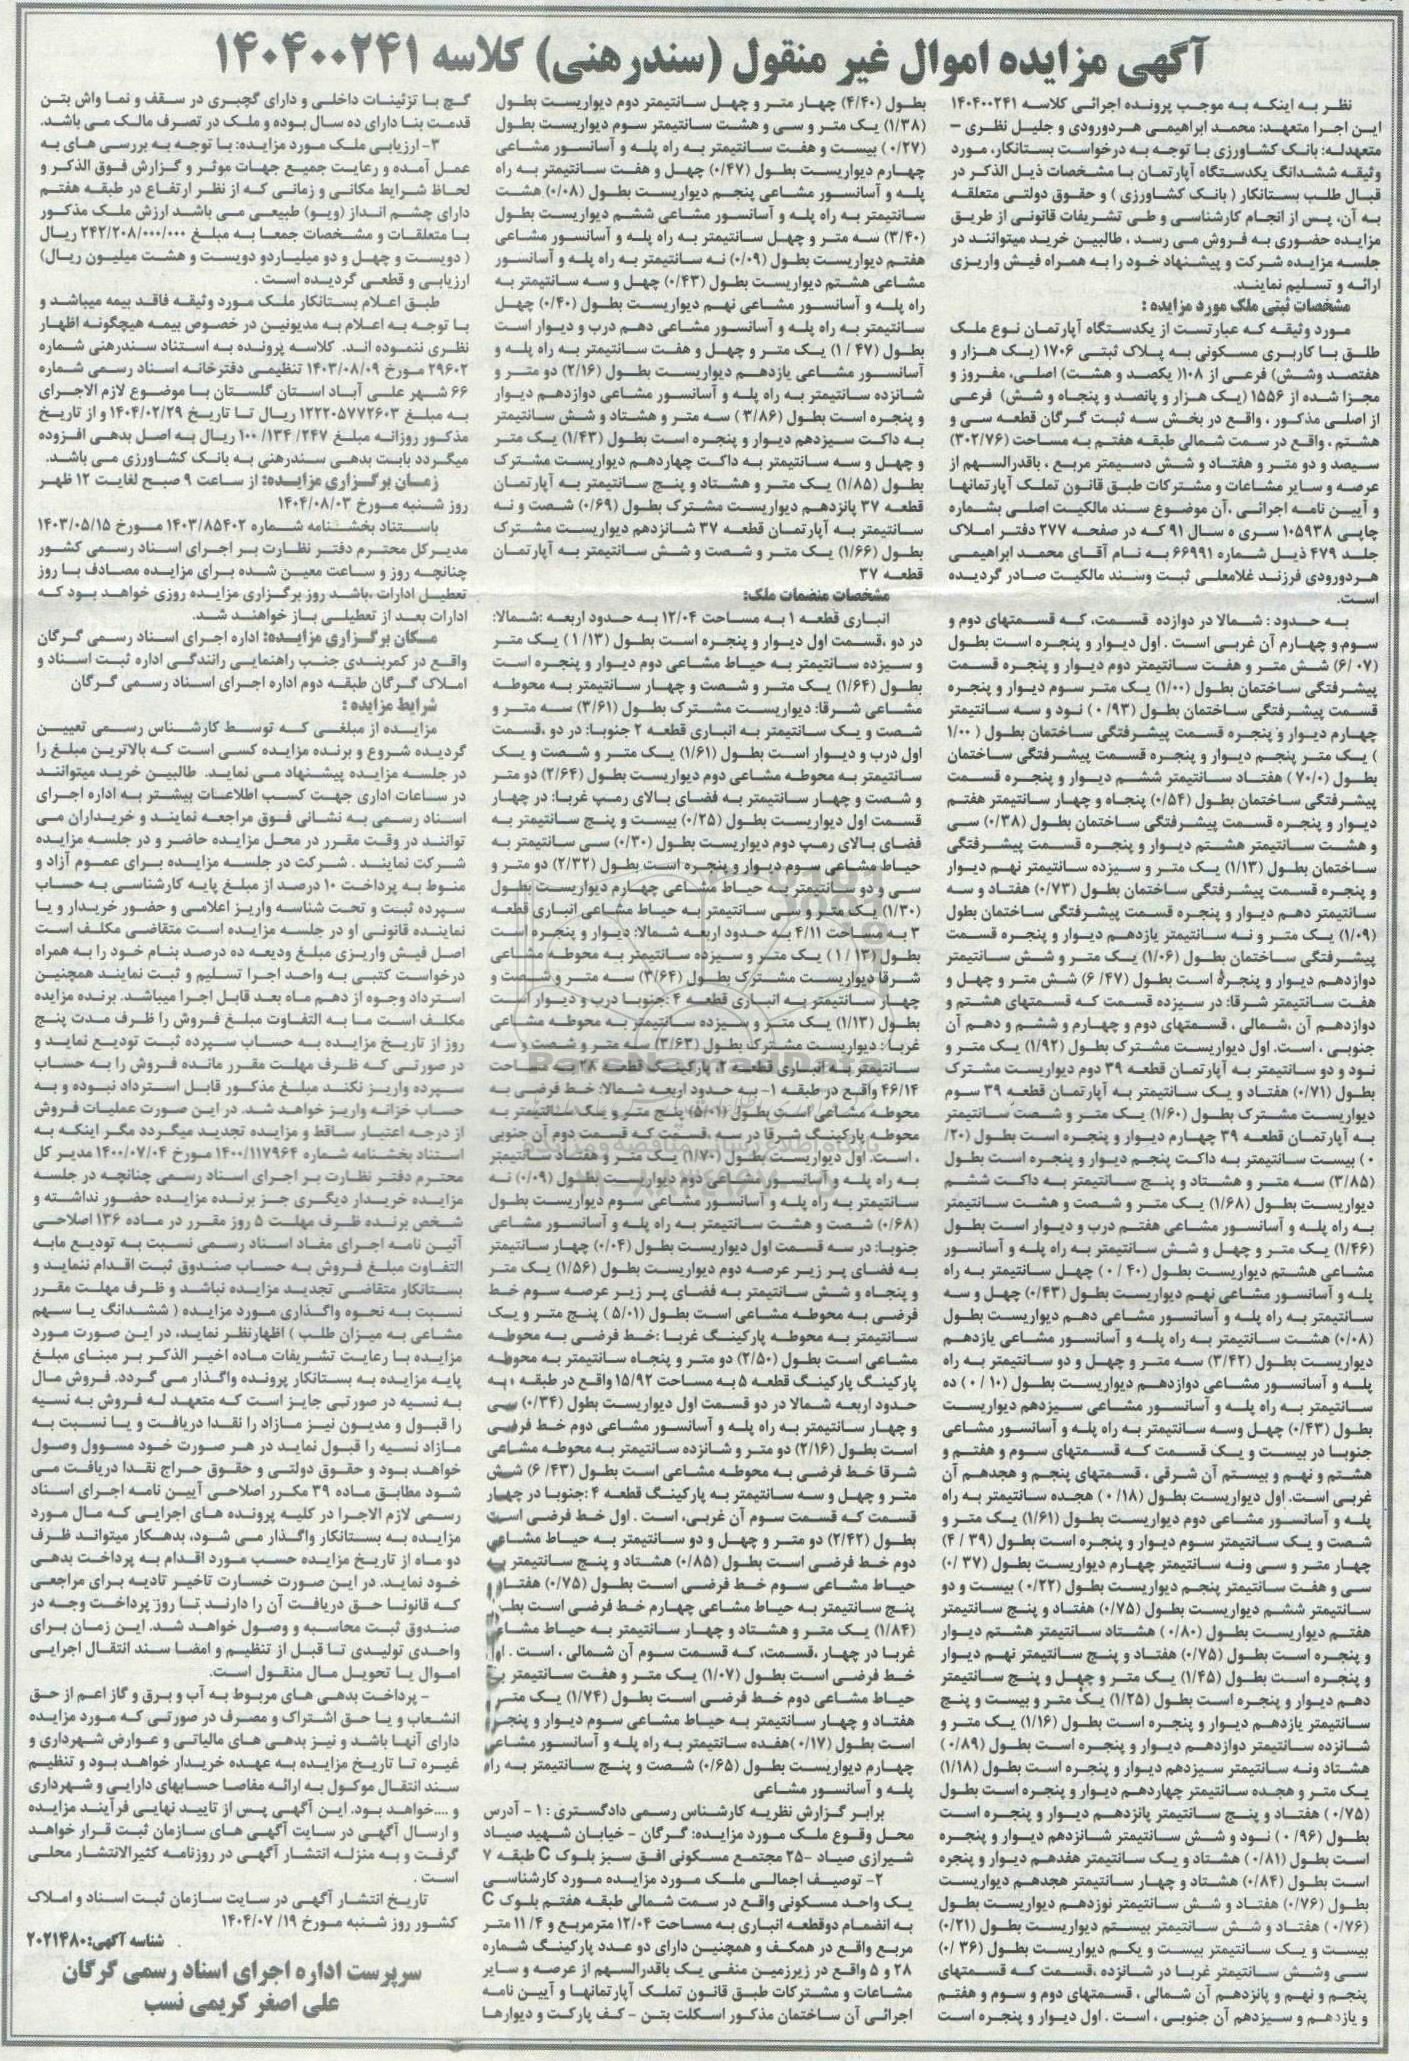 آگهی مزایده اموال غیر منقول (سندرهنی) کلاسه ۱۴۰۴۰۰۲۴۱
نظر به اینکه به موجب پرونده اجرائی کلاسه ۱۴۰۴۰۰۲۴۱
این اجرا متعهد: محمد ابراهیمی هردورودی و جلیل نظری –
متعهدله: بانک کشاورزی با توجه به درخواست بستانکار، مورد
وثیقه ششدانگ یکدستگاه آپارتمان با مشخصات ذیل الذکر در
قبال طلب بستانکار ( بانک کشاورزی ) و حقوق دولتی متعلقه
به آن، پس از انجام کارشناسی و طی تشریفات قانونی از طریق
مزایده حضوری به فروش می رسد ، طالبین خرید میتوانند در
جلسه مزایده شرکت و پیشنهاد خود را به همراه فیش واریزی
ارائه و تسلیم نمایند.
مشخصات ثبتی ملک مورد مزایده :
مورد وثیقه که عبارتست از یکدستگاه آپارتمان نوع ملک
طلق با کاربری مسکونی به پلاک ثبتی ۱۷۰۶ (یک هزار و
هفتصد وشش) فرعی از ۱۰۸( یکصد و هشت) اصلی، مفروز و
مجزا شده از ۱۵۵۶ (یک هزار و پانصد و پنجاه و شش) فرعی
از اصلی مذکور ، واقع در بخش سه ثبت گرگان قطعه سی و
هشتم ، واقع در سمت شمالی طبقه هفتم به مساحت (۳۰۲/۷۶)
سیصد و دو متر و هفتاد و شش دسیمتر مربع ، باقدرالسهم از
عرصه و سایر مشاعات و مشترکات طبق قانون تملک آپارتمانها
و آیین نامه اجرائی ،آن موضوع سند مالکیت اصلی بشماره
چاپی ۱۰۵۹۳۸ سری ه سال ۹۱ که در صفحه ۲۷۷ دفتر املاک
جلد ۴۷۹ ذیل شماره ۶۶۹۹۱ به نام آقای محمد ابراهیمی
هردورودی فرزند غلامعلی ثبت وسند مالکیت صادر گردیده
است.
به حدود : شمالا در دوازده قسمت، که قسمتهای دوم و
سوم،و چهارم آن غربی است . اول دیوار و پنجره است بطول
(۶/۰۷) شش متر و هفت سانتیمتر دوم دیوار و پنجره قسمت
پیشرفتگی ساختمان بطول (۱/۰۰) یک متر سوم دیوار و پنجره
قسمت پیشرفتگی ساختمان بطول (۰/۹۳) نود و سه سانتیمتر
چهارم دیوار و پنجره قسمت پیشرفتگی ساختمان بطول ( ۱/۰۰
) یک متر پنجم دیوار و پنجره قسمت پیشرفتگی ساختمان
بطول (۷۰/۰ ) هفتاد سانتیمتر ششم دیوار و پنجره قسمت
پیشرفتگی ساختمان بطول (۰/۵۴) پنجاه و چهار سانتیمتر هفتم
دیوار و پنجره قسمت پیشرفتگی ساختمان بطول (۰/۳۸) سی
و هشت سانتیمتر هشتم دیوار و پنجره قسمت پیشرفتگی
ساختمان بطول (۱/۱۳) یک متر و سیزده سانتیمتر نهم دیوار
و پنجره قسمت پیشرفتگی ساختمان بطول (۰/۷۳) هفتاد و سه
سانتیمتر دهم دیوار و پنجره قسمت پیشرفتگی ساختمان بطول
(۱/۰۹) یک متر و نه سانتیمتر یازدهم دیوار و پنجره قسمت
پیشرفتگی ساختمان بطول (۱/۰۶) یک متر و شش سانتیمتر
دوازدهم دیوار و پنجره است بطول (۶/۴۷) شش متر و چهل و
هفت سانتیمتر شرقا: در سیزده قسمت که قسمتهای هشتم و
دوازدهم آن ،شمالی ، قسمتهای دوم و چهارم و ششم و دهم آن
جنوبی ، است. اول دیواریست مشترک بطول (۱/۹۲) یک متر و
نود و دو سانتیمتر به آپارتمان قطعه ۳۹ دوم دیواریست مشترک
بطول (۰/۷۱) هفتاد و یک سانتیمتر به آپارتمان قطعه ۳۹ سوم
دیواریست مشترک بطول (۱/۶۰) یک متر و شصت سانتیمتر
به آپارتمان قطعه ۳۹ چهارم دیوار و پنجره است بطول (۲۰/
۰ ) بیست سانتیمتر به داکت پنجم دیوار و پنجره است بطول
(۳/۸۵) سه متر و هشتاد و پنج سانتیمتر به داکت ششم
دیواریست بطول (۱/۶۸) یک متر و شصت و هشت سانتیمتر
به راه پله و آسانسور مشاعی هفتم درب و دیوار است بطول
(۱/۴۶) یک متر و چهل و شش سانتیمتر به راه پله و آسانسور
مشاعی هشتم دیواریست بطول (۴۰ / ۰ ) چهل سانتیمتر به راه
پله و آسانسور مشاعی نهم دیواریست بطول (۰/۴۳) چهل و سه
سانتیمتر به راه پله و آسانسور مشاعی دهم دیواریست بطول
(۰/۰۸) هشت سانتیمتر به راه پله و آسانسور مشاعی یازدهم
دیواریست بطول (۳/۴۲) سه متر و چهل و دو سانتیمتر به راه
پله و آسانسور مشاعی دوازدهم دیواریست بطول (۱۰ / ۰ ) ده
سانتیمتر به راه پله و آسانسور مشاعی سیزدهم دیواریست
بطول (۰/۴۳) چهل وسه سانتیمتر به راه پله و آسانسور مشاعی
جنوبا در بیست و یک قسمت که قسمتهای سوم و هفتم و
هشتم و نهم و بیستم آن شرقی ، قسمتهای پنجم و هجدهم آن
غربی است. اول دیواریست بطول (۰/۱۸) هجده سانتیمتر به راه
پله و آسانسور مشاعی دوم دیواریست بطول (۱/۶۱) یک متر و
شصت و یک سانتیمتر سوم دیوار و پنجره است بطول (۳۹ / ۴)
چهار متر و سی ونه سانتیمتر چهارم دیواریست بطول (۳۷ /۰)
سی و هفت سانتیمتر پنجم دیواریست بطول (۰/۲۲) بیست و دو
سانتیمتر ششم دیواریست بطول (۰/۷۵) هفتاد و پنج سانتیمتر
هفتم دیواریست بطول (۰/۸۰) هشتاد سانتیمتر هشتم دیوار
و پنجره است بطول (۰/۷۵) هفتاد و پنج سانتیمتر نهم دیوار
و پنجره است بطول (۱/۴۵) یک متر و چهل و پنج سانتیمتر
دهم دیوار و پنجره است بطول (۱/۲۵) یک متر و بیست و پنج
سانتیمتر یازدهم دیوار و پنجره است بطول (۱/۱۶) یک متر و
شانزده سانتیمتر دوازدهم دیوار و پنجره است بطول (۰/۸۹ )
هشتاد ونه سانتیمتر سیزدهم دیوار و پنجره است بطول (۱/۱۸)
یک متر و هجده سانتیمتر چهاردهم دیوار و پنجره است بطول
(۰/۷۵ ) هفتاد و پنج سانتیمتر پانزدهم دیوار و پنجره است
بطول (۹۶/ ۰ ) نود و شش سانتیمتر شانزدهم دیوار و پنجره
است بطول (۰/۸۱) هشتاد و یک سانتیمتر هفدهم دیوار و پنجره
است بطول (۰/۸۴) هشتاد و چهار سانتیمتر هجدهم دیواریست
بطول (۰/۷۶) هفتاد و شش سانتیمتر نوزدهم دیواریست بطول
(۰/۷۶ ) هفتاد و شش سانتیمتر بیستم دیواریست بطول (۰/۲۱)
بیست و یک سانتیمتر بیست و یکم دیواریست بطول (۳۶ /۰)
سی وشش سانتیمتر غربا در شانزده ،قسمت که قسمتهای
پنجم و نهم و پانزدهم آن شمالی ، قسمتهای دوم و سوم و هفتم
و یازدهم و سیزدهم آن جنوبی ، است . اول دیوار و پنجره است
بطول (۴/۴۰) چهار متر و چهل سانتیمتر دوم دیواریست بطول
(۱/۳۸) یک متر و سی و هشت سانتیمتر سوم دیواریست بطول
(۰/۲۷) بیست و هفت سانتیمتر به راه پله و آسانسور مشاعی
چهارم دیواریست بطول (۰/۴۷) چهل و هفت سانتیمتر به راه
پله و آسانسور مشاعی پنجم دیواریست بطول (۰/۰۸) هشت
سانتیمتر به راه پله و آسانسور مشاعی ششم دیواریست بطول
(۳/۴۰) سه متر و چهل سانتیمتر به راه پله و آسانسور مشاعی
هفتم دیواریست بطول (۰/۰۹) نه سانتیمتر به راه پله و آسانسور
مشاعی هشتم دیواریست بطول (۰/۴۳) چهل و سه سانتیمتر به
راه پله و آسانسور مشاعی نهم دیواریست بطول (۰/۴۰) چهل
سانتیمتر به راه پله و آسانسور مشاعی دهم درب و دیوار است
بطول (۴۷ / ۱) یک متر و چهل و هفت سانتیمتر به راه پله و
آسانسور مشاعی یازدهم دیواریست بطول (۲/۱۶) دو متر و
شانزده سانتیمتر به راه پله و آسانسور مشاعی دوازدهم دیوار
و پنجره است بطول (۳/۸۶ ) سه متر و هشتاد و شش سانتیمتر
به داکت سیزدهم دیوار و پنجره است بطول (۱/۴۳) یک متر
و چهل و سه سانتیمتر به داکت چهاردهم دیواریست مشترک
بطول (۱/۸۵) یک متر و هشتاد و پنج سانتیمتر به آپارتمان
قطعه ۳۷ پانزدهم دیواریست مشترک بطول (۰/۶۹) شصت و نه
سانتیمتر به آپارتمان قطعه ۳۷ شانزدهم دیواریست مشترک
بطول (۱/۶۶) یک متر و شصت و شش سانتیمتر به آپارتمان
قطعه ۳۷
مشخصات منضمات ملک:
انباری قطعه ۱ به مساحت ۱۲/۰۴ به حدود اربعه :شمالا:
در دو ،قسمت اول دیوار و پنجره است بطول (۱/۱۳ ) یک متر
و سیزده سانتیمتر به حیاط مشاعی دوم دیوار و پنجره است
بطول (۱/۶۴) یک متر و شصت و چهار سانتیمتر به محوطه
مشاعی شرقا: دیواریست مشترک بطول (۳/۶۱) سه متر و
شصت و یک سانتیمتر به انباری قطعه ۲ جنوبا: در دو ،قسمت
اول درب و دیوار است بطول (۱/۶۱) یک متر و شصت و یک
سانتیمتر به محوطه مشاعی دوم دیواریست بطول (۲/۶۴) دو متر
و شصت و چهار سانتیمتر به فضای بالای رمپ غربا: در چهار
قسمت اول دیواریست بطول (۰/۲۵) بیست و پنج سانتیمتر به
فضای بالای رمپ دوم دیواریست بطول (۰/۳۰) سی سانتیمتر به
حیاط مشاعی سوم دیوار و پنجره است بطول (۲/۳۲) دو متر و
سی و دو سانتیمتر به حیاط مشاعی چهارم دیواریست بطول
(۱/۳۰) یک متر و سی سانتیمتر به حیاط مشاعی انباری قطعه
۳ به مساحت ۴/۱۱ به حدود اربعه شمالا: دیوار و پنجره است
بطول (۱/۱۳ ) یک متر و سیزده سانتیمتر به محوطه مشاعی
شرقا دیواریست مشترک بطول (۳/۶۴) سه متر و شصت و
چهار سانتیمتر به انباری قطعه ۴ :جنوبا درب و دیوار است
بطول (۱/۱۳) یک متر و سیزده سانتیمتر به محوطه مشاعی
غربا : دیواریست مشترک بطول (۳/۶۳) سه متر و شصت و سه
سانتیمتر به انباری قطعه ۲، پارکینگ قطعه ۲۸ به مساحت
۴۶/۱۴ واقع در طبقه ۱- به حدود اربعه شمالا: خط فرضی به
محوطه مشاعی است بطول (۵/۰۱) پنج متر و یک سانتیمتر به
محوطه پارکینگ شرقا در سه ،قسمت که قسمت دوم آن جنوبی
، است. اول دیواریست بطول (۱/۷۰) یک متر و هفتاد سانتیمتر
به راه پله و آسانسور مشاعی دوم دیواریست بطول (۰/۰۹) نه
سانتیمتر به راه پله و آسانسور مشاعی سوم دیواریست بطول
(۰/۶۸) شصت و هشت سانتیمتر به راه پله و آسانسور مشاعی
جنوبا: در سه قسمت اول دیواریست بطول (۰/۰۴) چهار سانتیمتر
به فضای پر زیر عرصه دوم دیواریست بطول (۱/۵۶) یک متر
و پنجاه و شش سانتیمتر به فضای پر زیر عرصه سوم خط
فرضی به محوطه مشاعی است بطول (۵/۰۱ ) پنج متر و یک
سانتیمتر به محوطه پارکینگ غربا :خط فرضی به محوطه
مشاعی است بطول (۲/۵۰) دو متر و پنجاه سانتیمتر به محوطه
پارکینگ پارکینگ قطعه ۵ به مساحت ۱۵/۹۲ واقع در طبقه به
حدود اربعه شمالا در دو قسمت اول دیواریست بطول (۰/۳۴) سی
و چهار سانتیمتر به راه پله و آسانسور مشاعی دوم خط فرضی
است بطول (۲/۱۶) دو متر و شانزده سانتیمتر به محوطه مشاعی
شرقا خط فرضی به محوطه مشاعی است بطول (۴۳/ ۶) شش
متر و چهل و سه سانتیمتر به پارکینگ قطعه ۴ :جنوبا در چهار
قسمت که قسمت سوم آن غربی، است . اول خط فرضی است
بطول (۲/۴۲) دو متر و چهل و دو سانتیمتر به حیاط مشاعی
دوم خط فرضی است بطول (۰/۸۵) هشتاد و پنج سانتیمتر به
حیاط مشاعی سوم خط فرضی است بطول (۰/۷۵) هفتاد
پنج سانتیمتر به حیاط مشاعی چهارم خط فرضی است
(۱/۸۴) یک متر و هشتاد و چهار سانتیمتر به حیاط مشاعی
غربا در چهار ،قسمت، که قسمت سوم آن شمالی ، است .
خط فرضی است بطول (۱/۰۷) یک متر و هفت سانتیمتر
حیاط مشاعی دوم خط فرضی است بطول (۱/۷۴) یک متر
هفتاد و چهار سانتیمتر به حیاط مشاعی سوم دیوار و پنجره
است بطول (۰/۱۷)هفده سانتیمتر به راه پله و آسانسور مشاعی
چهارم دیواریست بطول (۰/۶۵) شصت و پنج سانتیمتر به راه
پله و آسانسور مشاعی
برابر گزارش نظریه کارشناس رسمی دادگستری : ۱ - آدرس
محل وقوع ملک مورد مزایده: گرگان - خیابان شهید صیاد
شیرازی صیاد -۲۵ مجتمع مسکونی افق سبز بلوک C طبقه ۷
۲- توصیف اجمالی ملک مورد مزایده مورد کارشناسی
یک واحد مسکونی واقع در سمت شمالی طبقه هفتم بلوک C
به انضمام دوقطعه انباری به مساحت ۱۲/۰۴ مترمربع و ۴/ ۱۱ متر
مربع واقع در همکف و همچنین دارای دو عدد پارکینگ شماره
۲۸ و ۵ واقع در زیرزمین منفی یک باقدرالسهم از عرصه و سایر
مشاعات و مشترکات طبق قانون تملک آپارتمانها و آیین نامه
اجرائی آن ساختمان مذکور اسکلت بتن - کف پارکت و دیوارها
گچ با تزئینات داخلی و دارای گچبری در سقف و نما واش بتن
قدمت بنا دارای ده سال بوده و ملک در تصرف مالک می باشد.
۳- ارزیابی ملک مورد مزایده: با توجه به بررسی های به
عمل آمده و رعایت جمیع جهات موثر و گزارش فوق الذکر و
لحاظ شرایط مکانی و زمانی که از نظر ارتفاع در طبقه هفتم
دارای چشم انداز (ویو) طبیعی می باشد ارزش ملک مذکور
با متعلقات و مشخصات جمعا به مبلغ ۲۴۲/۲۰۸/۰۰۰/۰۰۰ ریال
( دویست و چهل و دو میلیاردو دویست و هشت میلیون ریال)
ارزیابی و قطعی گردیده است .
طبق اعلام بستانکار ملک مورد وثیقه فاقد بیمه میباشد و
با توجه به اعلام به مدیونین در خصوص بیمه هیچگونه اظهار
نظری ننموده اند. کلاسه پرونده به استناد سندرهنی شماره
۲۹۶۰۲ مورخ ۱۴۰۳/۰۸/۰۹ تنظیمی دفترخانه اسناد رسمی شماره
۶۶ شهر علی آباد استان گلستان با موضوع لازم الاجرای
به مبلغ ۱۲۲۲۰۵۷۷۲۶۰۳ ریال تا تاریخ ۱۴۰۴/۰۲/۲۹ و از تاریخ
مذکور روزانه مبلغ ۲۴۷/ ۱۳۴/ ۱۰۰ ریال به اصل بدهی افزوده
میگردد بابت بدهی سندرهنی به بانک کشاورزی می باشد.
زمان برگزاری مزایده: از ساعت ۹ صبح لغایت ۱۲ ظهر
روز شنبه مورخ ۱۴۰۴/۰۸/۰۳
باستناد بخشنامه شماره ۱۴۰۳/۸۵۴۰۲ مورخ ۱۴۰۳/۰۵/۱۵
مدیرکل محترم دفتر نظارت بر اجرای اسناد رسمی کشور
چنانچه روز و ساعت معین شده برای مزایده مصادف با روز
تعطیل ادارات ،باشد روز برگزاری مزایده روزی خواهد بود که
ادارات بعد از تعطیلی باز خواهند شد.
مکان برگزاری مزایده: اداره اجرای اسناد رسمی گرگان
واقع در کمربندی جنب راهنمایی رانندگی اداره ثبت اسناد و
املاک گرگان طبقه دوم اداره اجرای اسناد رسمی گرگان
شرایط مزایده :
مزایده از مبلغی که توسط کارشناس رسمی تعیین
گردیده شروع و برنده مزایده کسی است که بالاترین مبلغ را
در جلسه مزایده پیشنهاد می نماید. طالبین خرید میتوانند
در ساعات اداری جهت کسب اطلاعات بیشتر به اداره اجرای
اسناد رسمی به نشانی فوق مراجعه نمایند و خریداران می
توانند در وقت مقرر در محل مزایده حاضر و در جلسه مزایده
شرکت نمایند . شرکت در جلسه مزایده برای عموم آزاد و
منوط به پرداخت ۱۰ درصد از مبلغ پایه کارشناسی به حساب
سپرده ثبت و تحت شناسه واریز اعلامی و حضور خریدار و یا
نماینده قانونی او در جلسه مزایده است متقاضی مکلف است
اصل فیش واریزی مبلغ ودیعه ده درصد بنام خود را به همراه
درخواست کتبی به واحد اجرا تسلیم و ثبت نمایند همچنین
استرداد وجوه از دهم ماه بعد قابل اجرا میباشد. برنده مزایده
مکلف است ما به التفاوت مبلغ فروش را ظرف مدت پنج
روز از تاریخ مزایده به حساب سپرده ثبت تودیع نماید و
در صورتی که ظرف مهلت مقرر مانده فروش را به حساب
سپرده واریز نکند مبلغ مذکور قابل استرداد نبوده و به
حساب خزانه واریز خواهد شد. در این صورت عملیات فروش
از درجه اعتبار ساقط و مزایده تجدید میگردد مگر اینکه به
استناد بخشنامه شماره ۱۴۰۰/۱۱۷۹۶۴ مورخ ۱۴۰۰/۰۷/۰۴ مدیر کل
محترم دفتر نظارت بر اجرای اسناد رسمی چنانچه در جلسه
مزایده خریدار دیگری جز برنده مزایده حضور نداشته و
شخص برنده ظرف مهلت ۵ روز مقرر در ماده ۱۳۶ اصلاحی
آئین نامه اجرای مفاد اسناد رسمی نسبت به تودیع مابه
التفاوت مبلغ فروش به حساب صندوق ثبت اقدام ننماید و
بستانکار متقاضی تجدید مزایده نباشد و ظرف مهلت مقرر
نسبت به نحوه واگذاری مورد مزایده ( ششدانگ یا سهم
مشاعی به میزان طلب ) اظهارنظر نماید، در این صورت مورد
مزایده با رعایت تشریفات ماده اخیر الذکر بر مبنای مبلغ
پایه مزایده به بستانکار پرونده واگذار می گردد. فروش مال
به نسیه در صورتی جایز است که متعهد له فروش به نسیه
را قبول و مدیون نیز مازاد را نقدا دریافت و یا نسبت به
مازاد نسیه را قبول نماید در هر صورت خود مسوول وصول
خواهد بود و حقوق دولتی و حقوق حراج نقدا دریافت می
شود مطابق ماده ۳۹ مکرر اصلاحی آیین نامه اجرای اسناد
رسمی لازم الاجرا در کلیه پرونده های اجرایی که مال مورد
مزایده به بستانکار واگذار می شود، بدهکار میتواند ظرف
دو ماه از تاریخ مزایده حسب مورد اقدام به پرداخت بدهی
خود نماید. در این صورت خسارت تاخیر تادیه برای مراجعی
که قانونا حق دریافت آن را دارند تا روز پرداخت وجه در
صندوق ثبت محاسبه و وصول خواهد شد. این زمان برای
واحدی تولیدی تا قبل از تنظیم و امضا سند انتقال اجرایی
اموال یا تحویل مال منقول است.
- پرداخت بدهی های مربوط به آب و برق و گاز اعم از حق
انشعاب و یا حق اشتراک و مصرف در صورتی که مورد مزایده
دارای آنها باشد و نیز بدهی های مالیاتی و عوارض شهرداری و
غیره تا تاریخ مزایده به عهده خریدار خواهد بود و تنظیم
سند انتقال موکول به ارائه مفاصا حسابهای دارایی و شهرداری
و ....خواهد بود. این آگهی پس از تایید نهایی فرآیند مزایده
و ارسال آگهی در سایت آگهی های سازمان ثبت قرار خواهد
گرفت و به منزله انتشار آگهی در روزنامه کثیرالانتشار محلی
است .
تاریخ انتشار آگهی در سایت سازمان ثبت اسناد و املاک
کشور روز شنبه مورخ ۱۹/ ۱۴۰۴/۰۷
شناسه آگهی:۲۰۲۱۴۸۰
سرپرست اداره اجرای اسناد رسمی گرگان
علی اصغر کریمی نسب
ParsNamadData